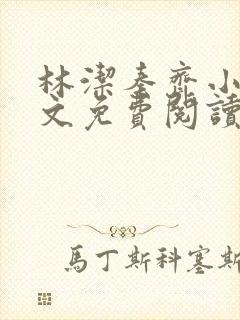 林潔秦齊小
文免費閱讀
馬丁斯科塞斯